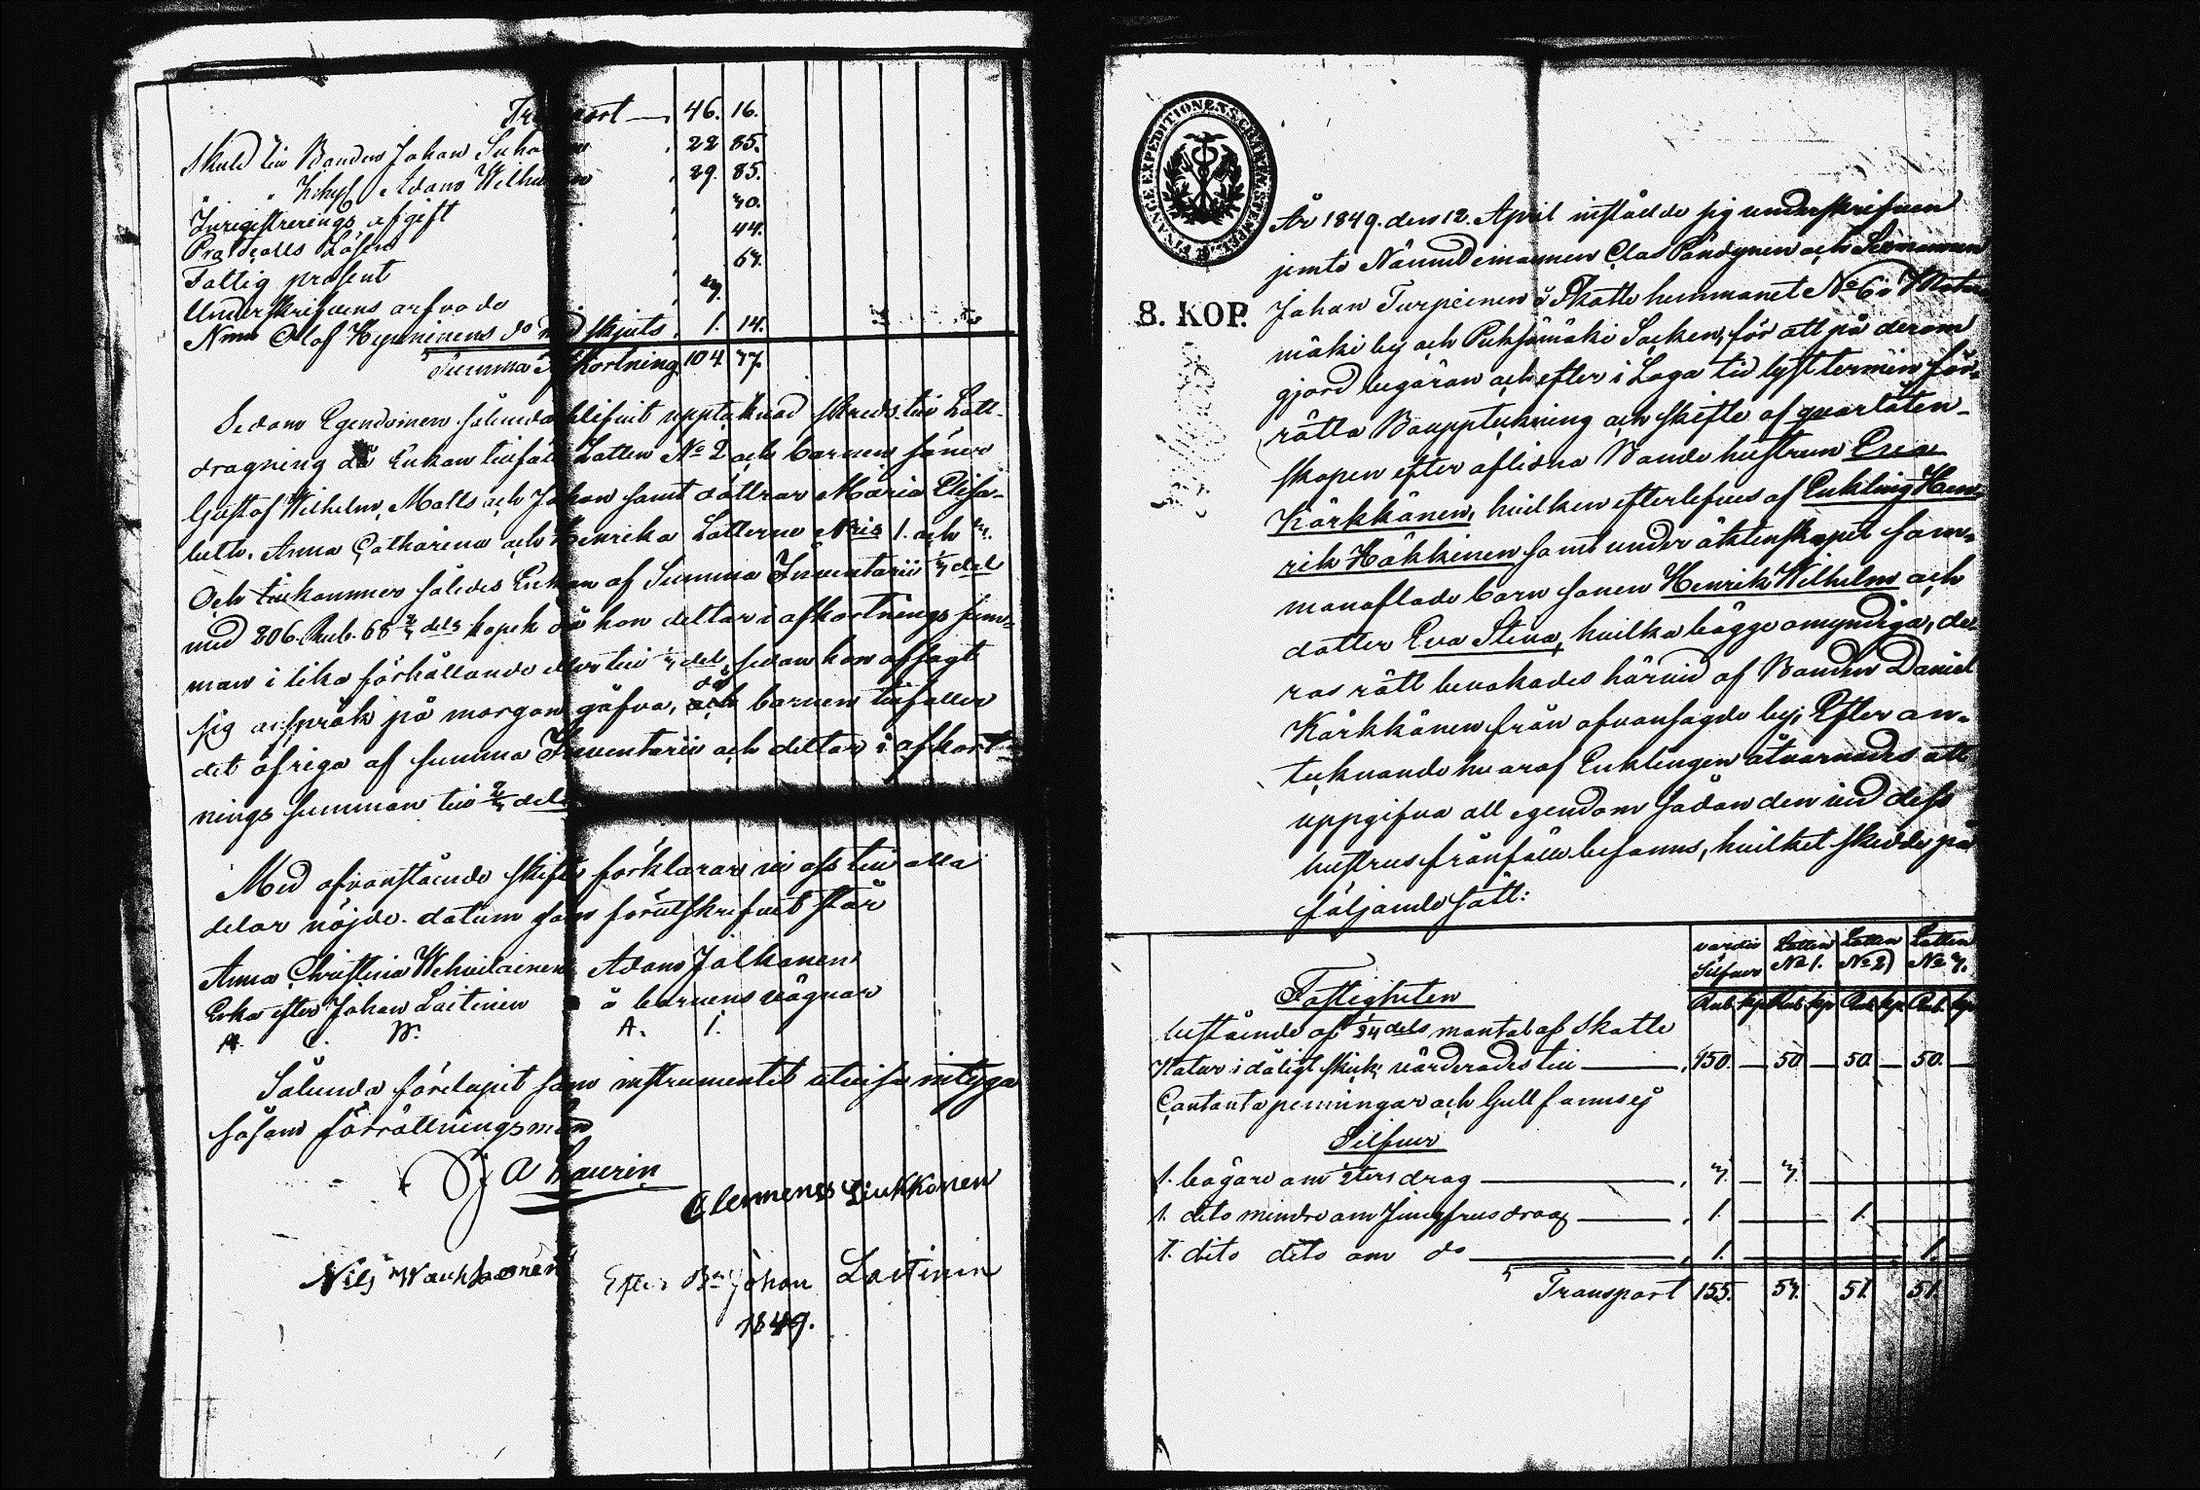 Transport 46. 16.
Skuld till Bonden Johan Suho 22 85.
" " Adam Wilhe 29. 85.
Inregistrerings afgift 30.
Protocolls Lösen 44.
Fattig procent 67.
Underskrifvens arfvode 3.
Nmn Olof Hyvärinens do med skjuts 1. 14.
Summa Afkortning 104 77.
Sedan Egendomen sålunda blifvit upptecknad skreds till Lott-
dragning då Enkan tillföll Lotten No 2 och barnen söner
Gustaf Wilhelm, Matts och Johan samt döttrar Maria Elisa-
beth, Anna Catharina och Henrika Lotterne Nris 1. och 3.
Och tillkommer således Enkan af Summa Inventarii 1/3 del
med 206. Rub. 68 2/3 dels kopek då hon deltar i afkortnings sum-
man i lika förhållande eller till 1/3 del, sedan hon afsagt
sig anspråk på morgongåfva, då barnen tillfaller
det öfriga af summa Inventarii och deltar i afkort-
nings summan till 2/3 del.
Med ofvanstående skifte förklarar vi oss till alla
delar nöjde. datum som förutskrifvit står
Anna Christina Wehviläinen Adam Jalkanen
Enka efter Johan Laitinen å barnens vägnar
A. C. W. A. I.
Sålunda förelupit som instrumentet utvisar intyga
såsom förrättningsmän
J A Laurin
Clemens Liukkonen
Nils Wauhkonen
Efter Bn Johan Laitinen
1849.
FINANCE EXPEDITIONENS GENER. STEMPEL
8. KOP.
År 1849. den 12. April inställde sig underskrifven
jemte Nämndemannen Clas Pöndynen och Sexmannen
Johan Turpeinen å Skatte hemmanet No 6 i
mäki by och Pieksämäki Socken, för att på derom
gjord begäran och efter i Laga tid lyst termin för-
rätta Bouppteckning och skifte af qvarlåten-
skapen efter aflidna Bonde hustrun Eva
Kärkkänen, hvilken efterlefves af Enkling Hen-
rik Häkkinen samt under äktenskapet sam-
manaflade barn sonen Henrik Wilhelm och
dotter Eva Stina, hvilka bägge omyndiga, de-
ras rätt bevakades härvid af Bonden Daniel
Kärkkänen från ofvansagde by; Efter an-
tecknande hvaraf Enklingen åtvarnades att
uppgifva all egendom sådan den vid dess
hustrus frånfälle befanns, hvilket skedde på
följande sätt:
värdie Silfver Lotten No 1. Lotten No 2) Lotten No 3.
Rub kp Rub kp Rub kp Rub. kp
Fastigheten
bestående af 1/24 dels mantal af Skatte
Natur i dåligt skick värderades till 150. 50 50 50.
Contanta penningar och Gull fanns ej
Silfver
1. bägare om 2ters drag 3. 3.
1. dito mindre om Jungfrus drag 1. 1.
1. dito dito om do 1. 1.
Transport 155. 53. 51. 51.